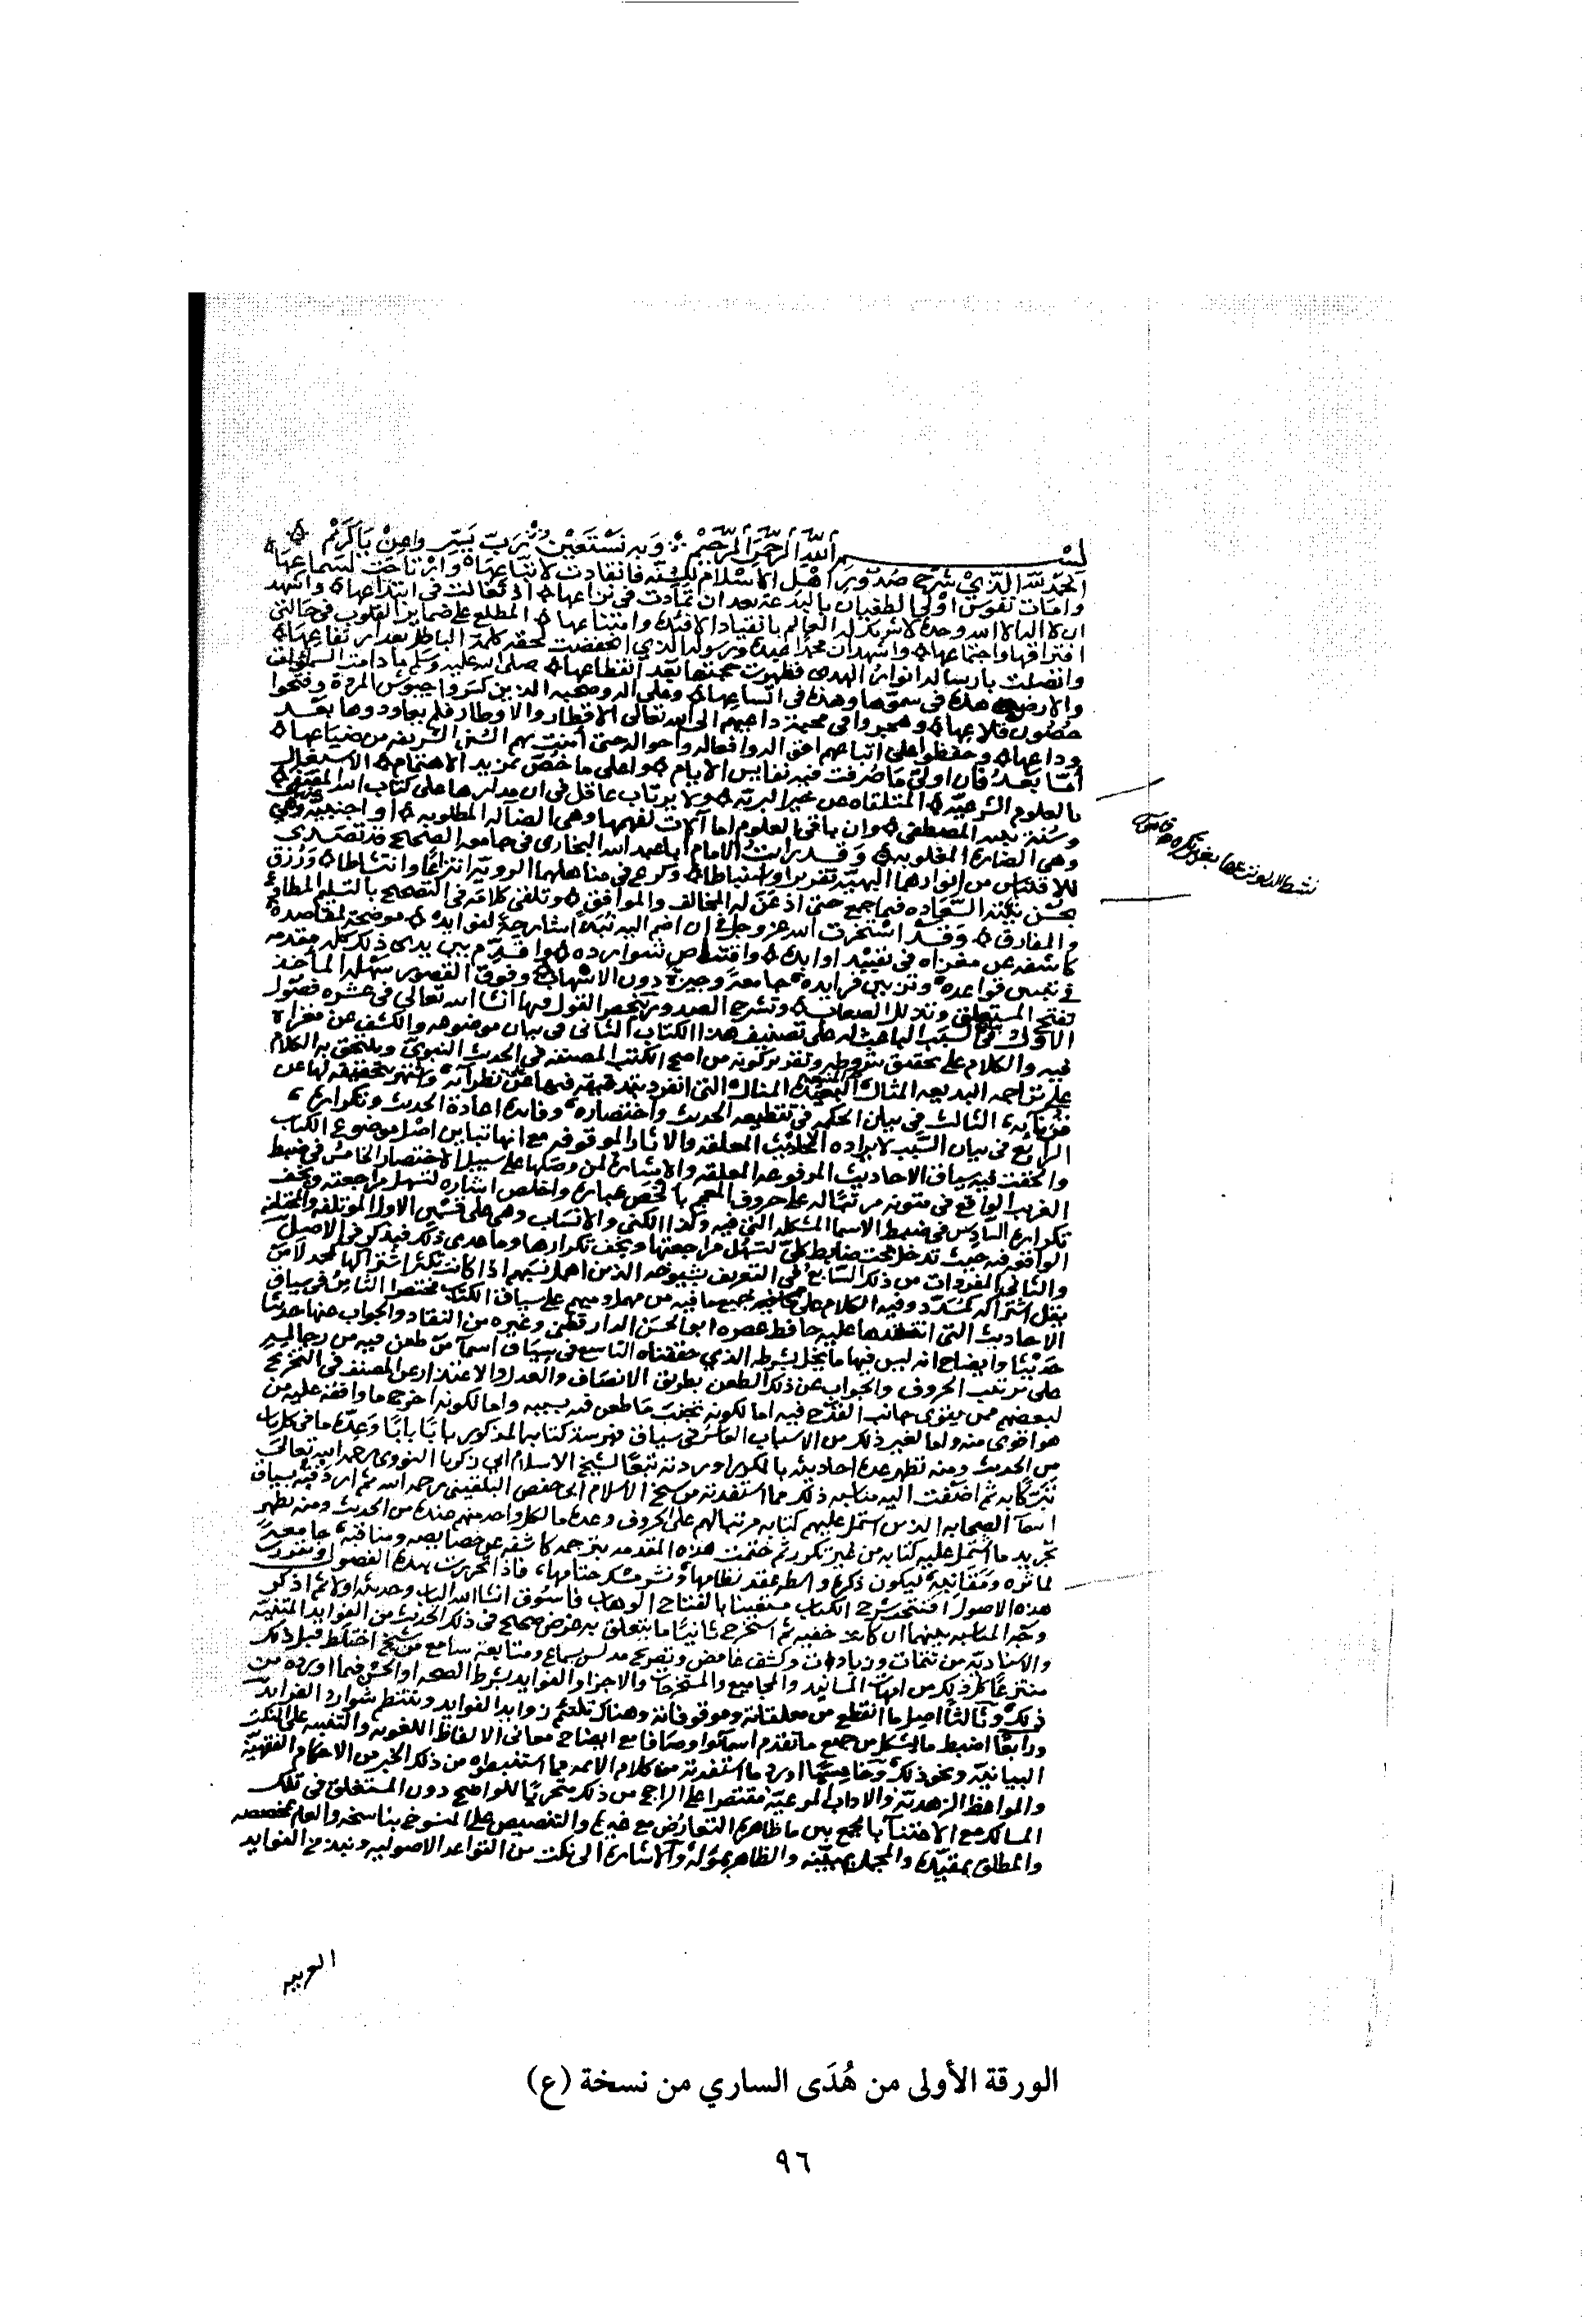 بسم الله الرحمن الرحيم وبه نستعين رب يسر واعن ياكريم
الحمد لله الذي شرح صدور اهل الاسلام للسنة فانقادت لاتباعها وارتاحت لسماعها
وامات نفوس اولي الطغيان بالبدعة بعد ان تمادت في نزاعها اذ تغالت في ابتداعها واشهد
ان لا اله الا الله وحده لا شريك له العالم بانقياد الافئدة وامتناعها المطلع على ضماير القلوب في حالتي
افتراقها واجتماعها واشهد ان محمدا عبده ورسوله الذي انخفضت بحقه كلمة الباطل بعد ارتفاعها
واتصلت بارساله انوار الهدى فظهرت حجتها بعد انقطاعها صلى الله عليه وسلم ما دامت السموات
والارض هذه في سموها وهذه في اتساعها وعلى اله وصحبه الذين كسروا جيوش المردة وفتحوا
حصون قلاعها وهجروا في محبة داعيهم الى الله تعالى الاقطار والاوطار فلم يعاودوها بعد
وداعها وحفظوا على اتباعهم اقواله وافعاله واحواله حتى امنت بهم السنن الشريفة من ضياعها
اما بعد فان اولى ما صرفت فيه نفايس الايام واعلى ما خص بمزيد الاهتمام الاشتغال
بالعلوم الشرعية المتلقاه عن خير البرية ولا يرتاب عاقل في ان مدارها على كتاب الله المقتفى
وسنة نبيه المصطفى وان باقي العلوم اما آلات لفهمها وهي الضالة المطلوبه او اجنبية عنها
وهي الضارة المغلوبه وقد رايت الامام ابا عبد الله البخاري في جامعه الصحيح قد تصدى
للاقتباس من انوارهما البهية تقريرا واستنباطا وكرع من مناهلهما الروية انتزاعا وانتشاطا ورزق
بحسن نيته السعاده فيما جمع حتى اذعن له المخالف والموافق وتلقى كلامه في التصحيح بالتسليم المطاوع
والمفارق وقد استخرت الله عز وجل في ان اضم اليه نبذا شارحة لفوايده موضحة لمقاصده
كاشفه عن مغزاه في تقييد اوابده واقتناص شوارده واقدم بين يدى ذلك كله مقدمه
في تبيين قواعده وتزيين فرايده جامعة وجيزة دون الاسهاب وفوق القصور سهلة الماخذ
تفتح المستغلق وتذلل الصعاب وتشرح الصدور وينحصر القول فيها ان شا الله تعالى في عشره فصول
الاول في السبب الباعث له على تصنيف هذا الكتاب الثاني في بيان موضوعه والكشف عن مغزاه
فيه والكلام على تحقيق شروطه وتقرير كونه من اصح الكتب المصنفه في الحديث النبوي ويلتحق به الكلام
على تراجمه البديعه المثال المنيعه المنال التي انفرد بتدقيقه فيها عن نظرآئه واشتهر بتحقيقه لها عن
قرنآيه الثالث في بيان الحكمه في تقطيعه الحديث واختصاره وفايدة اعادة الحديث وتكراره
الرابع في بيان السبب لايراده الاحاديث المعلقه والاثار الموقوفه مع انها تباين اصل موضوع الكتاب
والحقت فيه سياق الاحاديث المرفوعه المعلقه والاشارة لمن وصلها على سبيل الاختصار الخامس في ضبط
الغريب الواقع في متونه مرتبا له على حروف المعجم بالخص عباره واخلص اشاره لتسهل مراجعته ويخف
تكراره السادس في ضبط الاسما المشكله التي فيه وكذا الكنى والانساب وهي على قسمين الاول الموتلفه والمختلفه
الواقعه فيه حيث تدخل تحت ضابط كلي لتسهل مراجعتها ويخف تكرارها وما عدى ذلك فيذكر في الاصل
والثاني المفردات من ذلك السابع في التعريف بشيوخه الذين اهمل نسبهم اذا كانت يكثر اشتراكها كمحمد لا من
يقل اشتراكه كمسدد وفيه الكلام على جميع ما فيه من مهمل ومبهم على سياق الكتاب مختصرا الثامن في سياق
الاحاديث التي انتقدها عليه حافظ عصره ابو الحسن الدارقطني وغيره من النقاد والجواب عنها حديثا
حديثا وايضاح انه ليس فيها ما يخل بشرطه الذي حققناه التاسع في سياق اسمآ من طعن فيه من رجاله
على ترتيب الحروف والجواب عن ذلك الطعن بطريق الانصاف والعدل والاعتذار عن المصنف في التخريج
لبعضهم ممن يقوى جانب القدح فيه اما لكونه تجنب ما طعن فيه بسببه واما لكونه اخرج ما وافقه عليه من
هو اقوى منه واما لغير ذلك من الاسباب العاشر في سياق فهرسة كتابه المذكور بابا بابا وعدة ما في كل باب
من الحديث ومنه تظهر عدة احاديثه بالمكرر اوردته تبعا لشيخ الاسلام ابي زكريا النووي رحمه الله تعالى
تبركا به ثم اضفت اليه مناسبه ذلك مما استفدته من شيخ الاسلام ابي حفص البلقيني رحمه الله ثم اردفته بسياق
اسمآ الصحابه الذين اشتمل عليهم كتابه مرتبا لهم على الحروف وعدة ما لكل واحد منهم عنده من الحديث ومنه يظهر
تحرير ما اشتمل عليه كتابه من غير تكرير ثم ختمت هذه المقدمه بترجمه كاشفه عن خصايصه ومناقبه جامعة
لماثره ومناقبه ليكون ذكره واسطة عقد نظامها ونشر مسك ختامها فاذا تحررت هذه الفصول وتقررت
هذه الاصول افتتحت شرح الكتاب مستعينا بالفتاح الوهاب فاسوق ان شا الله الباب وحديثه اولا ثم اذكر
وجه المناسبه بينهما ان كانت خفيه ثم استخرج ثانيا ما يتعلق به غرض صحيح في ذلك الحديث من الفوايد المتنية
والاسنادية من تتمات وزيادات وكشف غامض وتصريح مدلس بسماع ومتابعة سامع من شيخ اختلط قبل ذلك
منتزعا كل ذلك من امهات المسانيد والجوامع والمستخرجات والاجزا والفوايد بشرط الصحه او الحسن فيما اورده من
ذلك وثالثا اصل ما انقطع من معلقاته وموقوفاته وهناك تلتئم زوايد الفوايد وتنتظم شوارد الفرايد
ورابعا اضبط ما يشكل من جميع ما تقدم اسمآ واوصافا مع ايضاح معاني الالفاظ اللغويه والتنبيه على النكت
البيانيه ونحو ذلك وخامسا اورد ما استفدته من كلام الايمه مما استنبطوه من ذلك الخبر من الاحكام الفقهية
والمواعظ الزهدية والاداب المرعية مقتصرا على الراجح من ذلك متحريا للواضح دون المستغلق في تلك
المسالك مع الاعتنآ بالجمع بين ما ظاهره التعارض مع غيره والتنصيص على المنسوخ بناسخه والعام بمخصصه
والمطلق بمقيده والمجمل بمبينه والظاهر بموله والاشارة الى نكت من القواعد الاصوليه ونبذ من الفوايد
العربيه
الورقة الأولى من هُدَى الساري من نسخة (ع)
٩٦